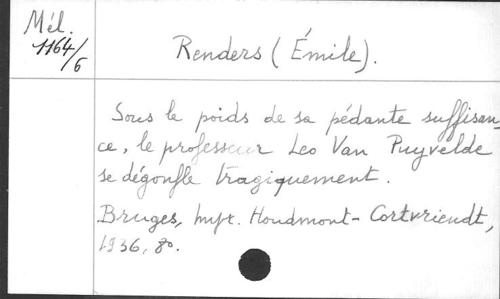 Mél.
1164/6
Renders (Émile).
Sous le poids de sa pédante suffisan-
ce, le professeur Leo Van Puyvelde
se dégonfle tragiquement.
Bruges, Impr. Houdmont-Cortvriendt,
1936, 8o.